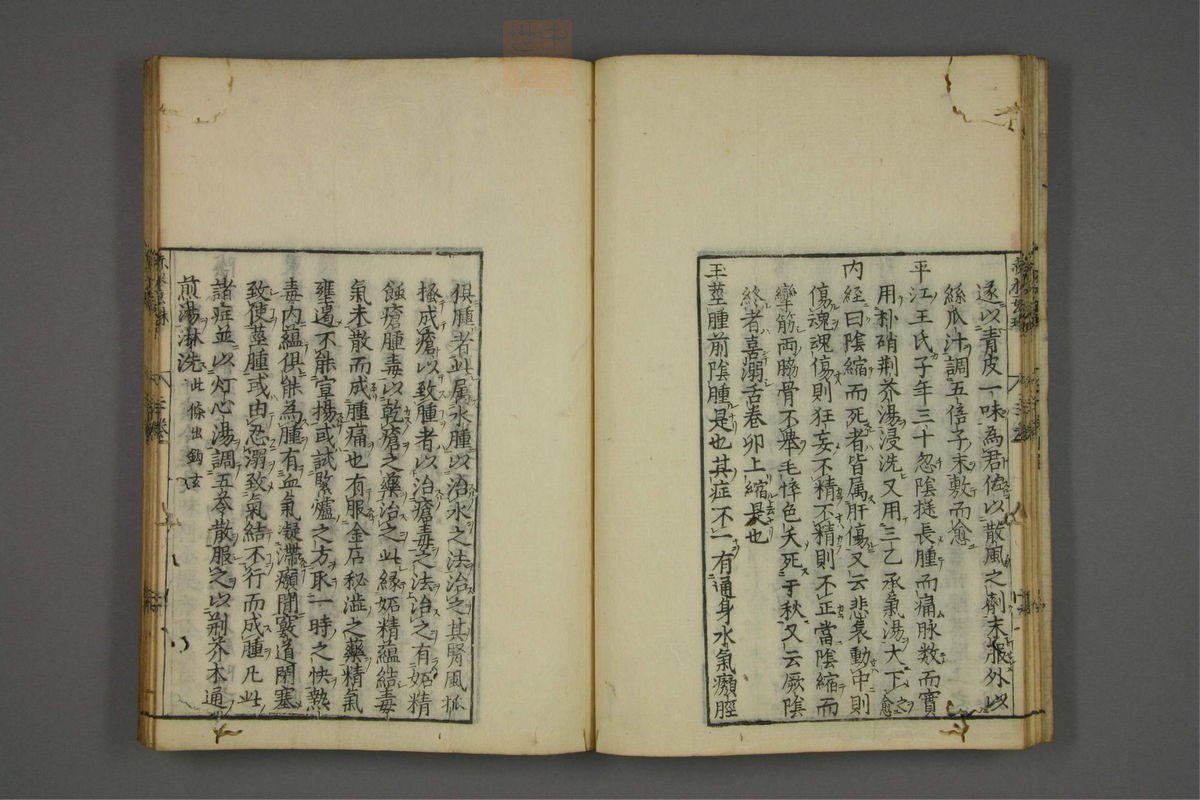 遂以青皮一味為君佐以散風之劑末服外以
絲瓜汁調五倍子末敷而愈
平江王氏子年三十忽陰挺長腫而痛脉数而實
用朴硝荆芥湯浸洗又用三乙承氣湯大下愈
内経曰陰縮而死者皆属肝傷又云悲哀動中則
傷魂魂傷則狂妄不精不精則不正當陰縮而
攣筋両脇骨不舉毛悴色夭死于秋又云厥陰
終者喜溺舌卷卵上縮是也
玉莖腫前陰腫是也其症不一有通身水氣癩脛
俱腫者此属水腫以治水之法治之其腎風抓
搔成瘡以致腫者以治瘡毒之法治之有妬精
蝕瘡腫毒以乾瘡之藥治之此縁妬精蘊結毒
氣未散而成腫痛也有服金店秘澁之藥精氣
壅遏不能宣揚或試燃爐之方取一時之快熱
毒内蘊俱能為腫有血氣凝滞癩閉竅道閉塞
致使莖腫或由忍溺致氣結不行而成腫凡此
諸症並以灯心湯調五苓散服之以荆芥木通
煎湯淋洗此條出鈎玄